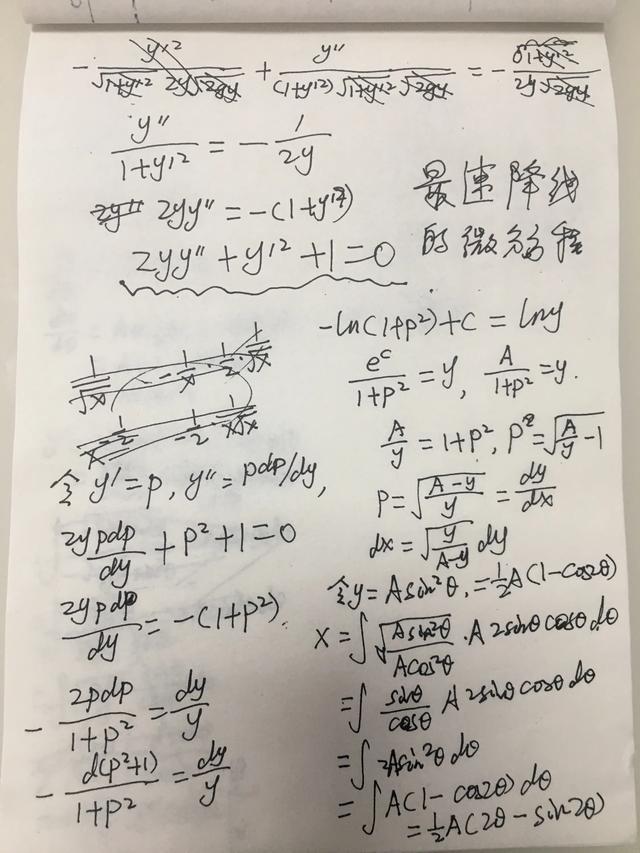 - y'² / (√(1+y'²) 2y√(2gy)) + y'' / ((1+y'²)√(1+y'²)√(2gy)) = - √(1+y'²) / (2y√(2gy))
y'' / (1+y'²) = - 1 / 2y
2yy'' = -(1+y'²)
2yy'' + y'² + 1 = 0
最速降线
的微分方程
令 y' = p, y'' = pdp/dy,
2ypdp / dy + p² + 1 = 0
2ypdp / dy = -(1+p²).
- 2pdp / (1+p²) = dy / y
- d(p²+1) / (1+p²) = dy / y
-ln(1+p²) + C = lny
e^c / (1+p²) = y, A / (1+p²) = y.
A / y = 1+p², p = √(A/y - 1)
p = √((A-y) / y) = dy / dx
dx = √(y / (A-y)) dy
令 y = Asin²θ, = ½A(1-cos2θ)
x = ∫ √(Asin²θ / Acos²θ) · A 2sinθ cosθ dθ
= ∫ sinθ / cosθ A 2sinθ cosθ dθ
= ∫ 2Asin²θ dθ
= ∫ A(1-cos2θ) dθ
= ½A(2θ - sin2θ)